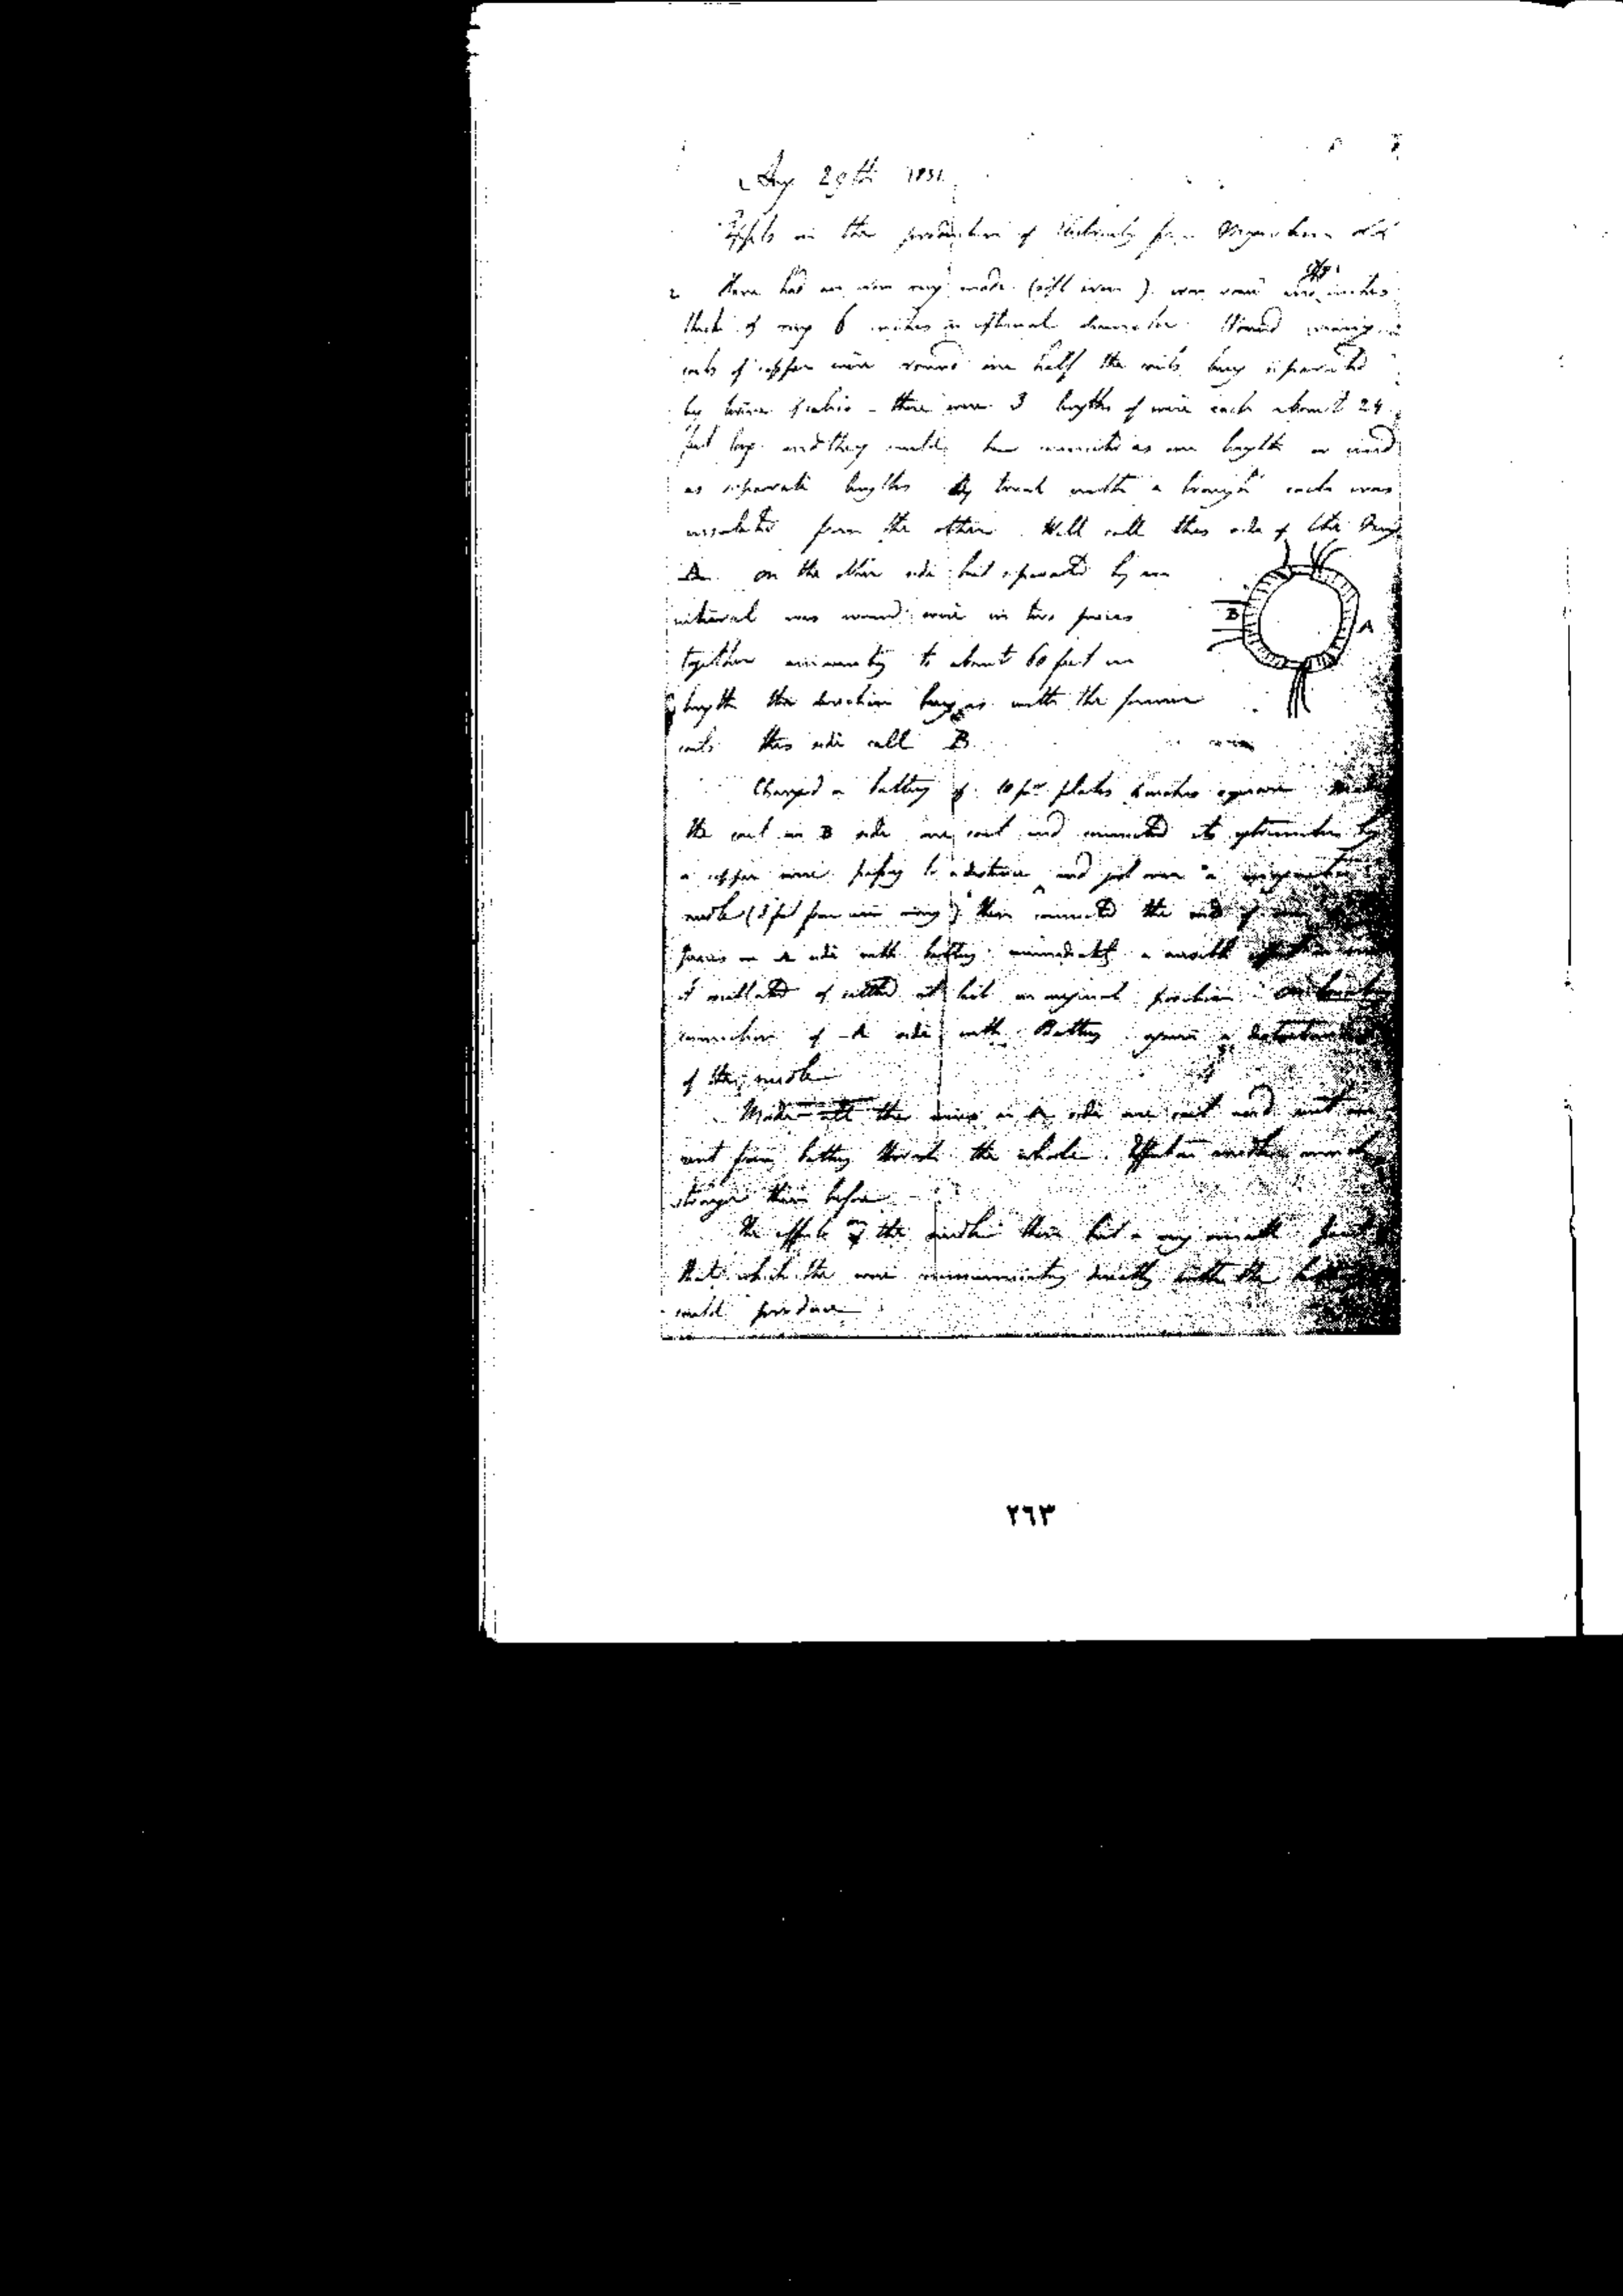 Aug 29th 1831
Expts on the production of Electricity from Magnetism &c &c
2 Have had an iron ring made (soft iron), iron round and inches
thick & ring 6 inches in external diameter. Wound many
coils of copper wire round one half the coils being separated
by twine & calico - there were 3 lengths of wire each about 24
feet long and they could be connected as one length or used
as separate lengths By trial with a trough each was
insulated from the other. Will call this side of the Ring
A. on the other side but separated by an
interval was wound wire in two pieces
together amounting to about 60 feet in
length the direction being as with the former
coils this side call B.
Charged a battery of 10 pr plates 4 inches square Made
the coil on B side one coil and connected its extremities by
a copper wire passing to a distance and just over a magnetic
needle (3 feet from iron ring) then connected the ends of one
pieces on A side with battery immediately a sensible effect on
it oscillated & settled at last in original position. On breaking
connection of A side with Battery again a disturbance
of the needle
Made all the wires on A side one coil and sent
current from battery through the whole. Effect on needle much
stronger than before
The effect on the needle then but a very small part
that which the wire communicating directly with the
could produce
B
A
٢٦٣